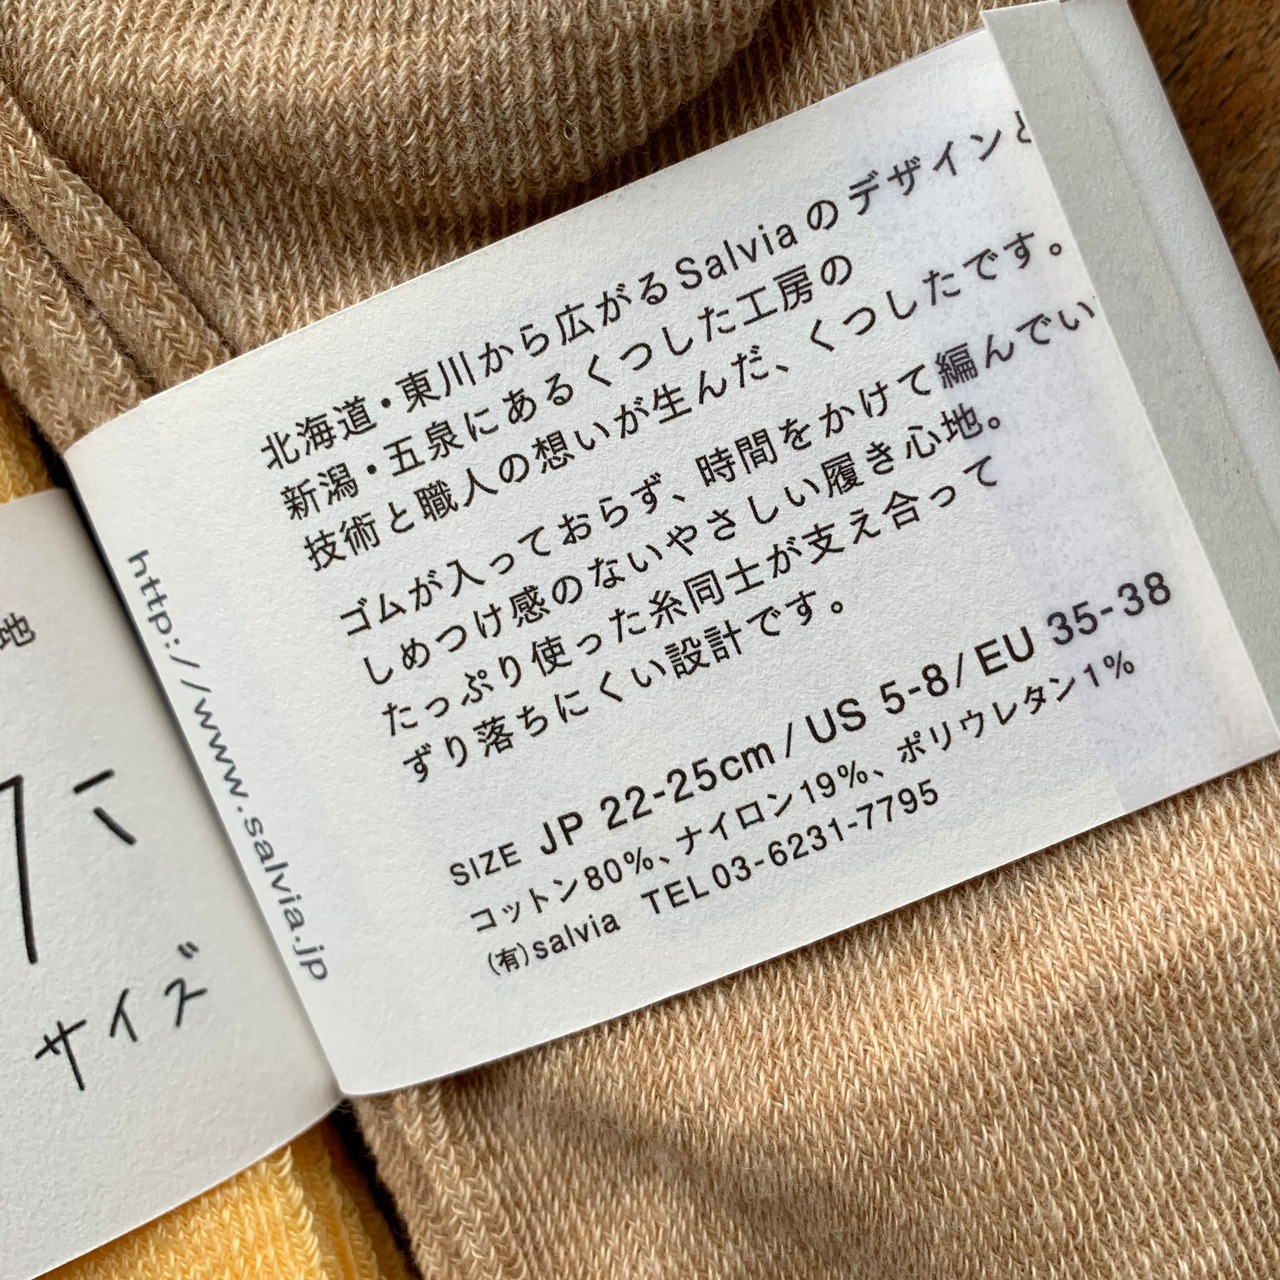 北海道・東川から広がるSalviaのデザインと
新潟・五泉にあるくつした工房の
技術と職人の想いが生んだ、くつしたです。
ゴムが入っておらず、時間をかけて編んでい
しめつけ感のないやさしい履き心地。
たっぷり使った糸同士が支え合って
ずり落ちにくい設計です。
SIZE JP 22-25cm / US 5-8 / EU 35-38
コットン80%、ナイロン19%、ポリウレタン1%
(有)salvia TEL 03-6231-7795
http://www.salvia.jp
地
サイズ